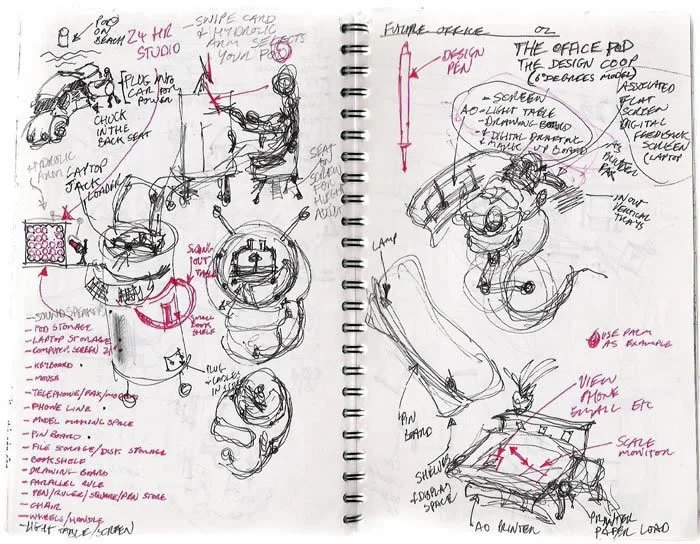 POD
ON
BEACH
24 HR
STUDIO
- SWIPE CARD
& HYDROLIC
ARM SELECTS
YOUR POD
PLUG INTO
CAR FOR
POWER
CHUCK
IN THE
BACK SEAT
HYDROLIC
ARM
LAPTOP
JACK
LOADER
SEAT
ON
SCREW
FOR
HEIGHT
ADJUST
SWING
OUT
TABLE
SMALL
BOOK
SHELF
PLUG
+ CABLES
IN SIDE
- SOUNDSPEAKERS
- POD STORAGE
- LAPTOP STORAGE
- COMPUTER SCREEN 21
- KEYBOARD
- MOUSE
- TELEPHONE/FAX/MODEM
- PHONE LINE
- MODEL MAKING SPACE
- PIN BOARD
- FILE STORAGE/DISK STORAGE
- BOOKSHELF
- DRAWING BOARD
- PARALLEL RULE
- PEN/RULER/SQUARE/PEN STORE
- CHAIR
- WHEELS/HANDLE
- LIGHT TABLE/SCREEN
FUTURE OFFICE 02
DESIGN
PEN
THE OFFICE POD
THE DESIGN COOP
(6 DEGREES MODEL)
- SCREEN
A0 - LIGHT TABLE
- DRAWING BOARD
- DIGITAL DRAFTING
& MARK UP BOARD
ASSOCIATED
FLAT
SCREEN
DIGITAL
FEEDBACK
SCREEN
(LAPTOP
IN OUT
VERTICAL
TRAYS
LAMP
USE PALM
AS EXAMPLE
PIN
BOARD
VIEW
PHONE
EMAIL ETC
SCALE
MONITOR
SHELVES
+ DISPLAY
SPACE
A0 PRINTER
PRINTER
PAPER LOAD